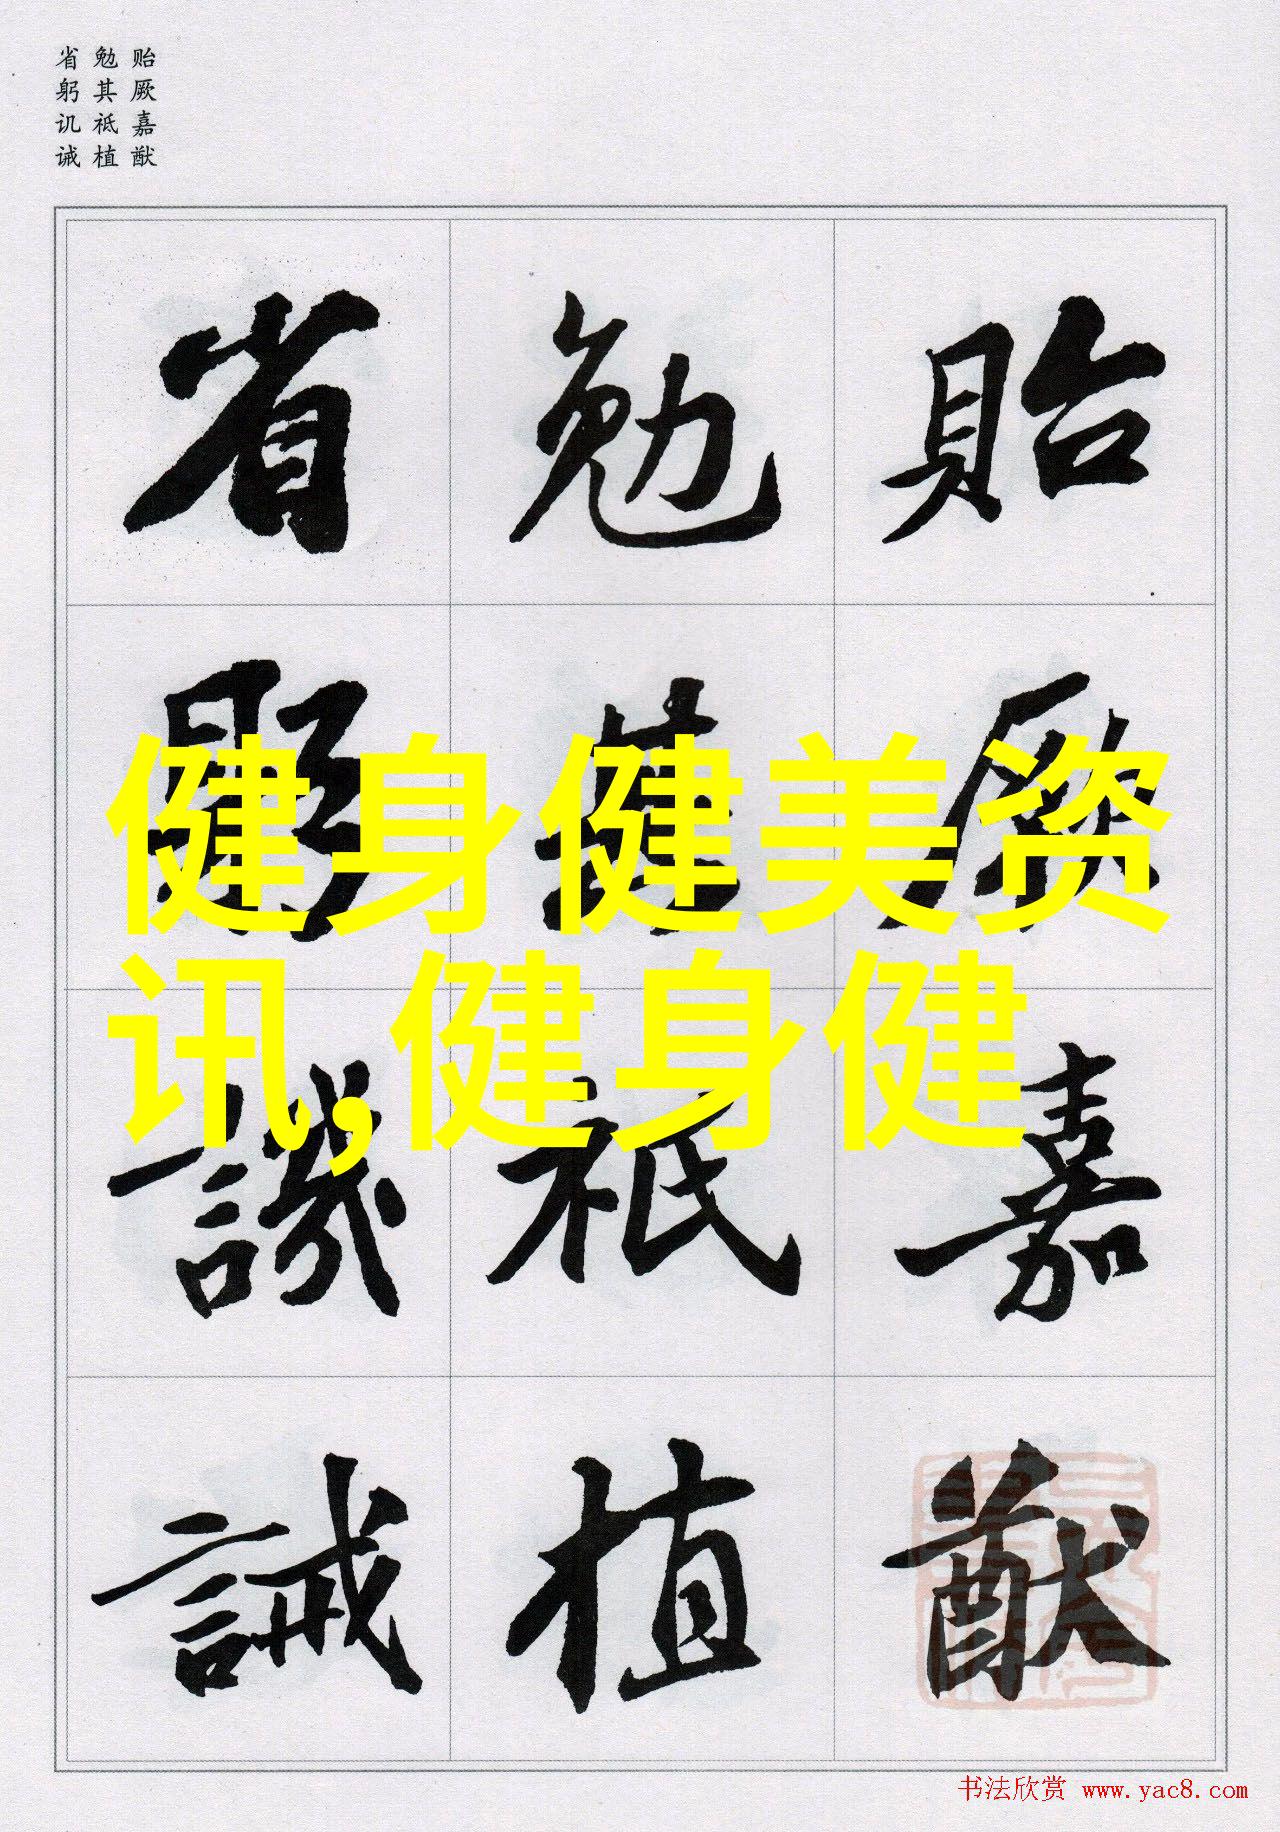 贻厥嘉猷
勉其祗植
省躬讥诫
貽厥嘉猷
勉其祗植
省躬譏誡
健身健美资
讯,健身健
书法欣赏 www.yac8.com